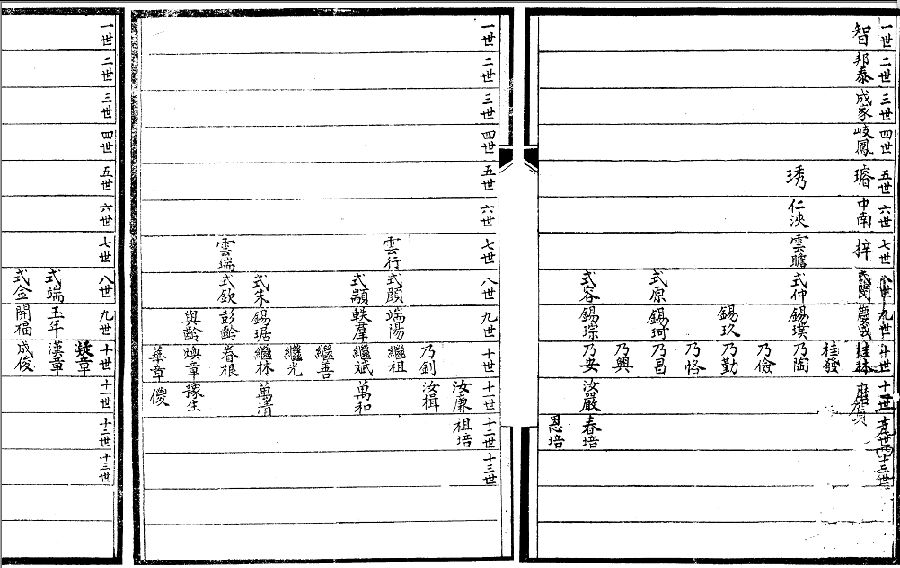 一世 二世 三世 四世 五世 六世 七世 九世 十世 十一世 十三世
智 邦泰 成家 岐鳳 瑃 中南 梓
桂發
琇 仁泱 雲瞻 式仲 錫璞 乃陶
乃儉
錫玖 乃勤
乃恪
式原 錫珂 乃昌
乃興
式容 錫琮 乃安 汝嚴 春培
恩培
一世 二世 三世 四世 五世 六世 七世 八世 九世 十世 十一世 十二世 十三世
汝廉 祖培
乃劍 汝楫
雲行 式願 端陽 繼祖
式顯 蛱羣 繼斌 萬和
繼善
繼光
式朱 錫琚 繼林 萬清
雲端 式欽 彭齡 春根
與齡 煥章
華章 儍
一世 二世 三世 四世 五世 六世 七世 八世 九世 十世 十一世 十二世 十三世
式端 玉年 漢章
式金 開福 成俊